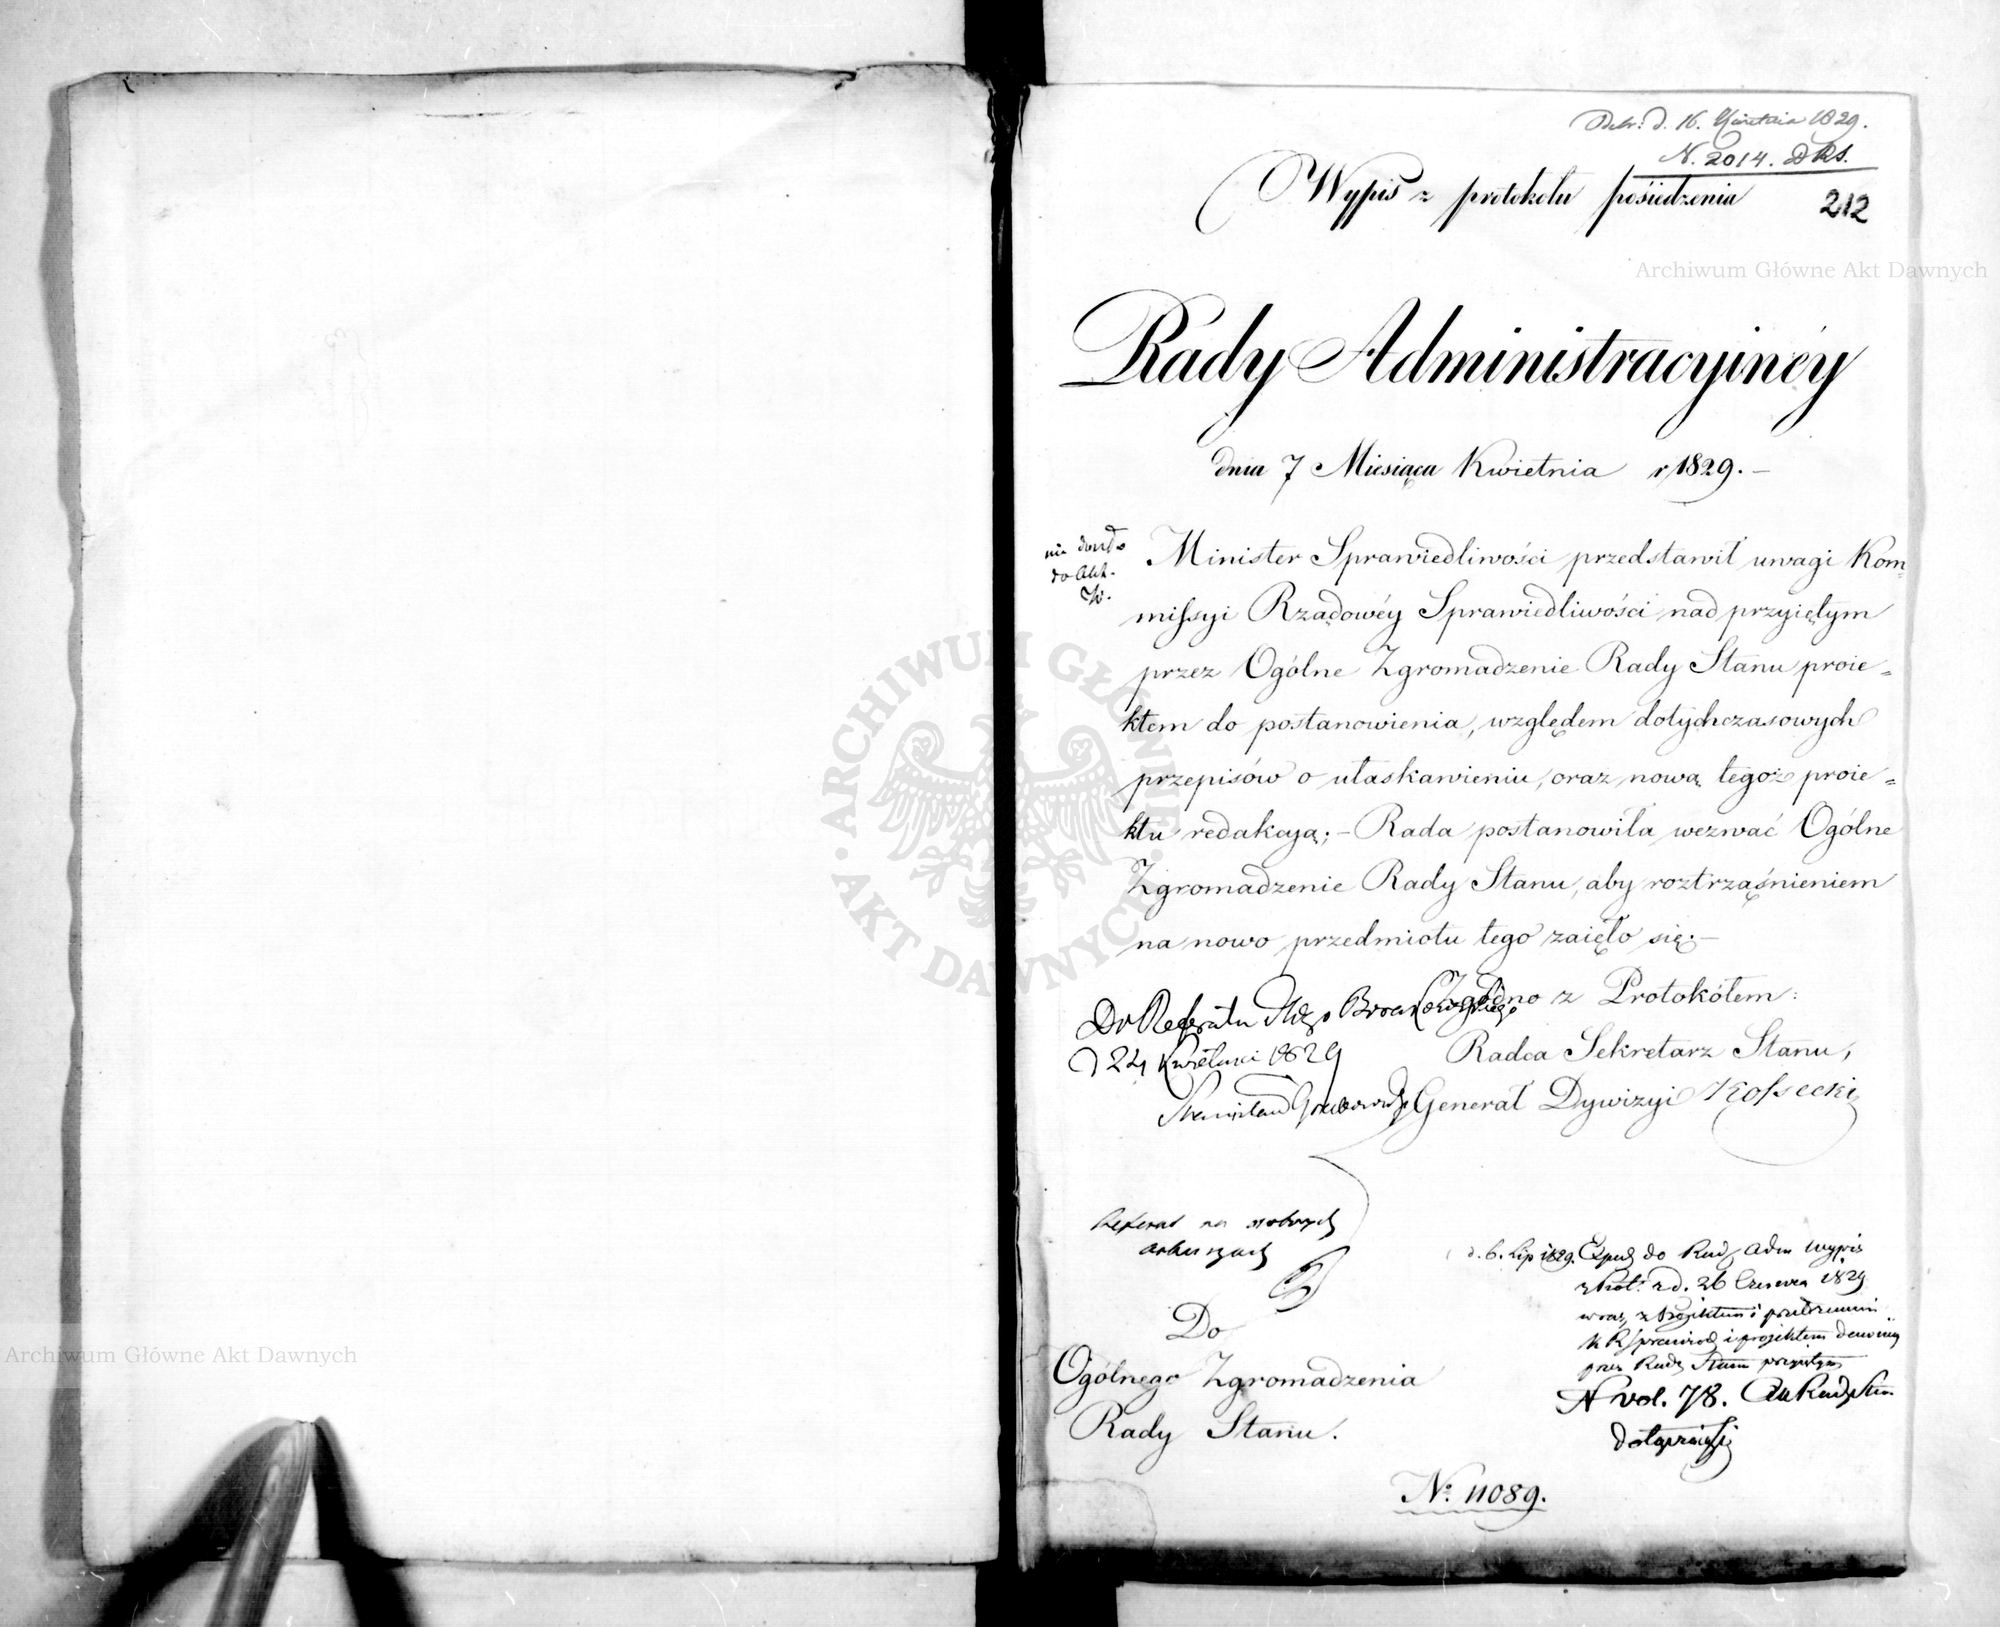 d. 16. Kwietnia 1829.
N. 2014. DRS.
Wypis z protokołu posiedzenia
212
Archiwum Główne Akt Dawnych
Rady Administracyinéy
dnia 7 Miesiąca Kwietnia r 1829. –
nie
do Akt.
Minister Sprawiedliwości przedstawił uwagi Kom-
missyi Rządowéy Sprawiedliwości nad przyiętym
przez Ogólne Zgromadzenie Rady Stanu proie-
ktem do postanowienia, względem dotychczasowych
przepisów o ułaskawieniu, oraz nową tegoż proie-
ktu redakcyą; – Rada postanowiła wezwać Ogólne
Zgromadzenie Rady Stanu, aby roztrząśnieniem
na nowo przedmiotu tego zaięło się. –
ARCHIWUM GŁÓWNE AKT DAWNYCH
Zgodno z Protokółem:
Radca Sekretarz Stanu,
Generał Dywizyi Kossecki
Do Referatu
d 24 Kwietnia 1829
Stanisław Grabowski
Referat na osobnych
arkuszach
Do
Ogólnego Zgromadzenia
Rady Stanu.
d. 6. Lip 1829. Exped do Rady Adm wypis
z Prot: z d. 26 Czerwca 1829
wraz z Projektem i
i projektem
przez Radę Stanu przyjętym
N vol. 78.
Archiwum Główne Akt Dawnych
No. 11089.